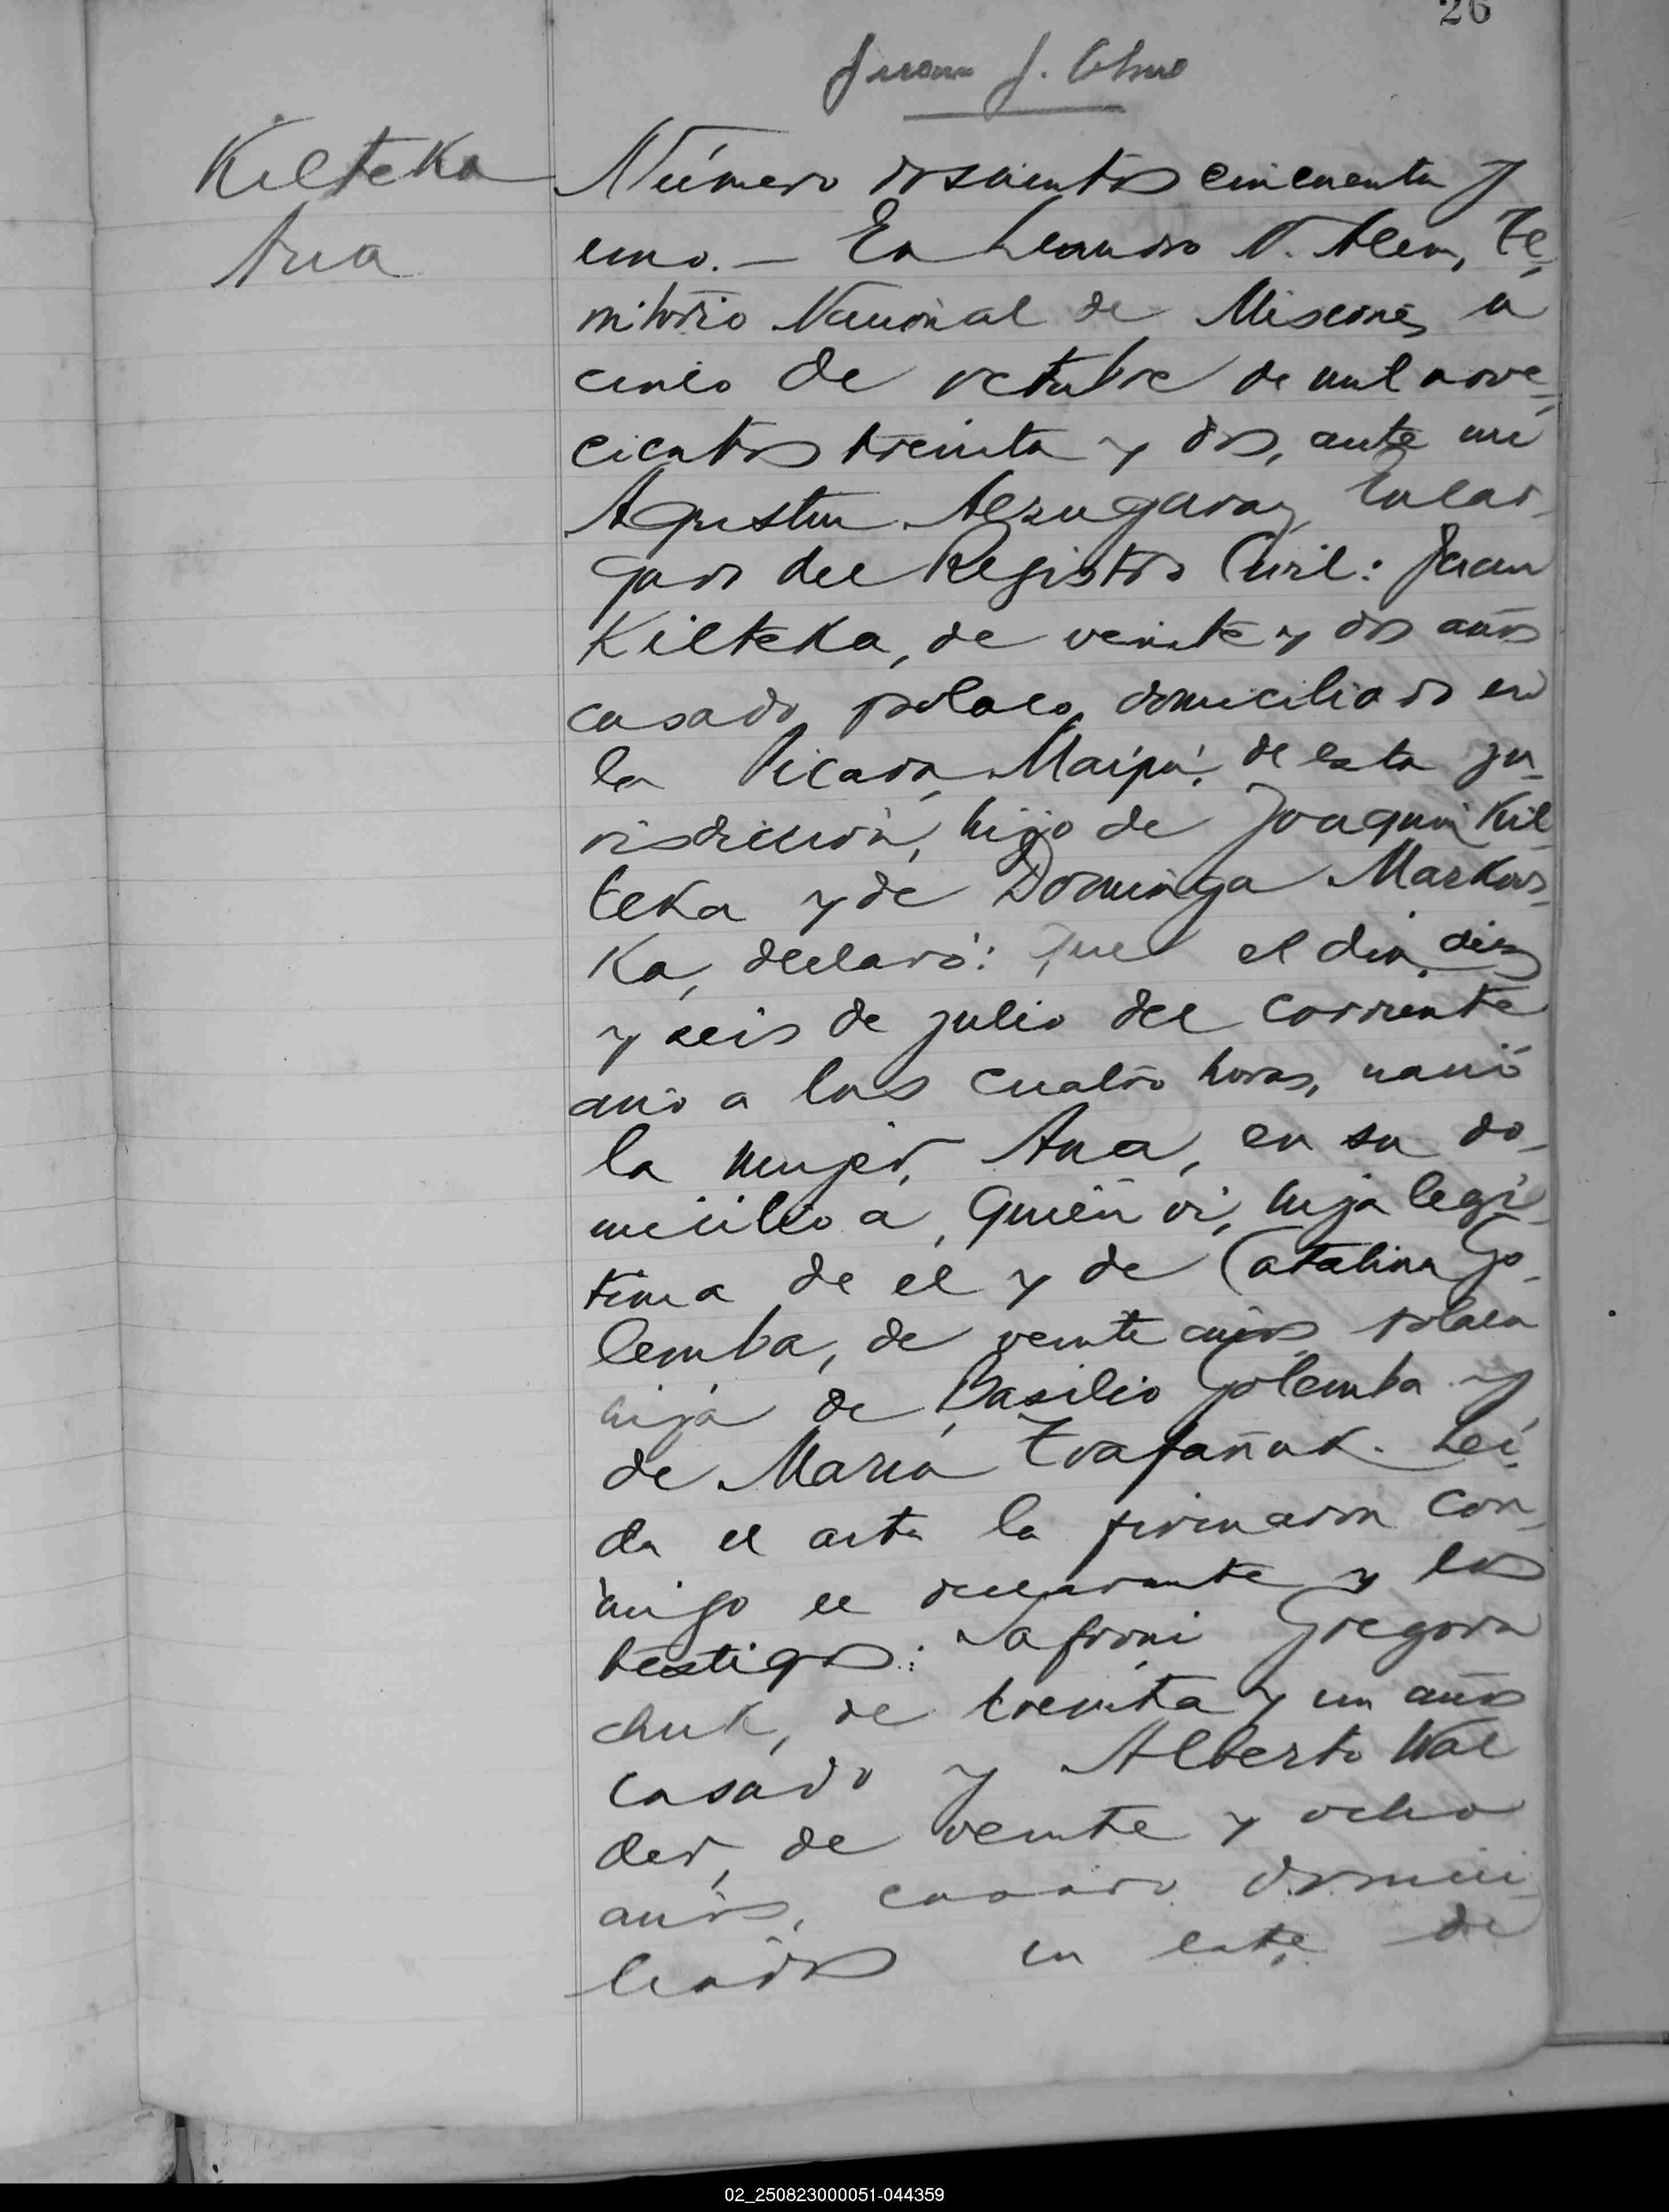 26
Juan J.
Kilteka
Ana
Número doscientos cincuenta y
uno. — En Leandro N. Alem, Te-
rritorio Nacional de Misiones, a
cinco de octubre de mil nove-
cientos treinta y dos, ante mi
Agustin Alzugaray, Encar-
gado del Registro Civil: Juan
Kilteka, de veinte y dos años
casado, polaco, domiciliado en
la Picada Maipú, de esta ju-
risdiccion, hijo de Joaquin Kil-
teka y de Dominga Markows-
ka, declaró: Que el dia diez
y seis de julio del corriente
año a las cuatro horas, nació
la mujer, Ana, en su do-
micilio a quien vi, hija legi-
tima de el y de Catalina Go-
lemba, de veinte años, polaca
hija de Basilio Golemba y
de Maria Trafañuk. Lei-
da el acta la firmaron con-
migo el declarante y los
testigos: Safroni Gregora
chuk, de treinta y un años
casado y Alberto Wal
der, de veinte y ocho
años, casado domici-
liados en este de
02_250823000051-044359